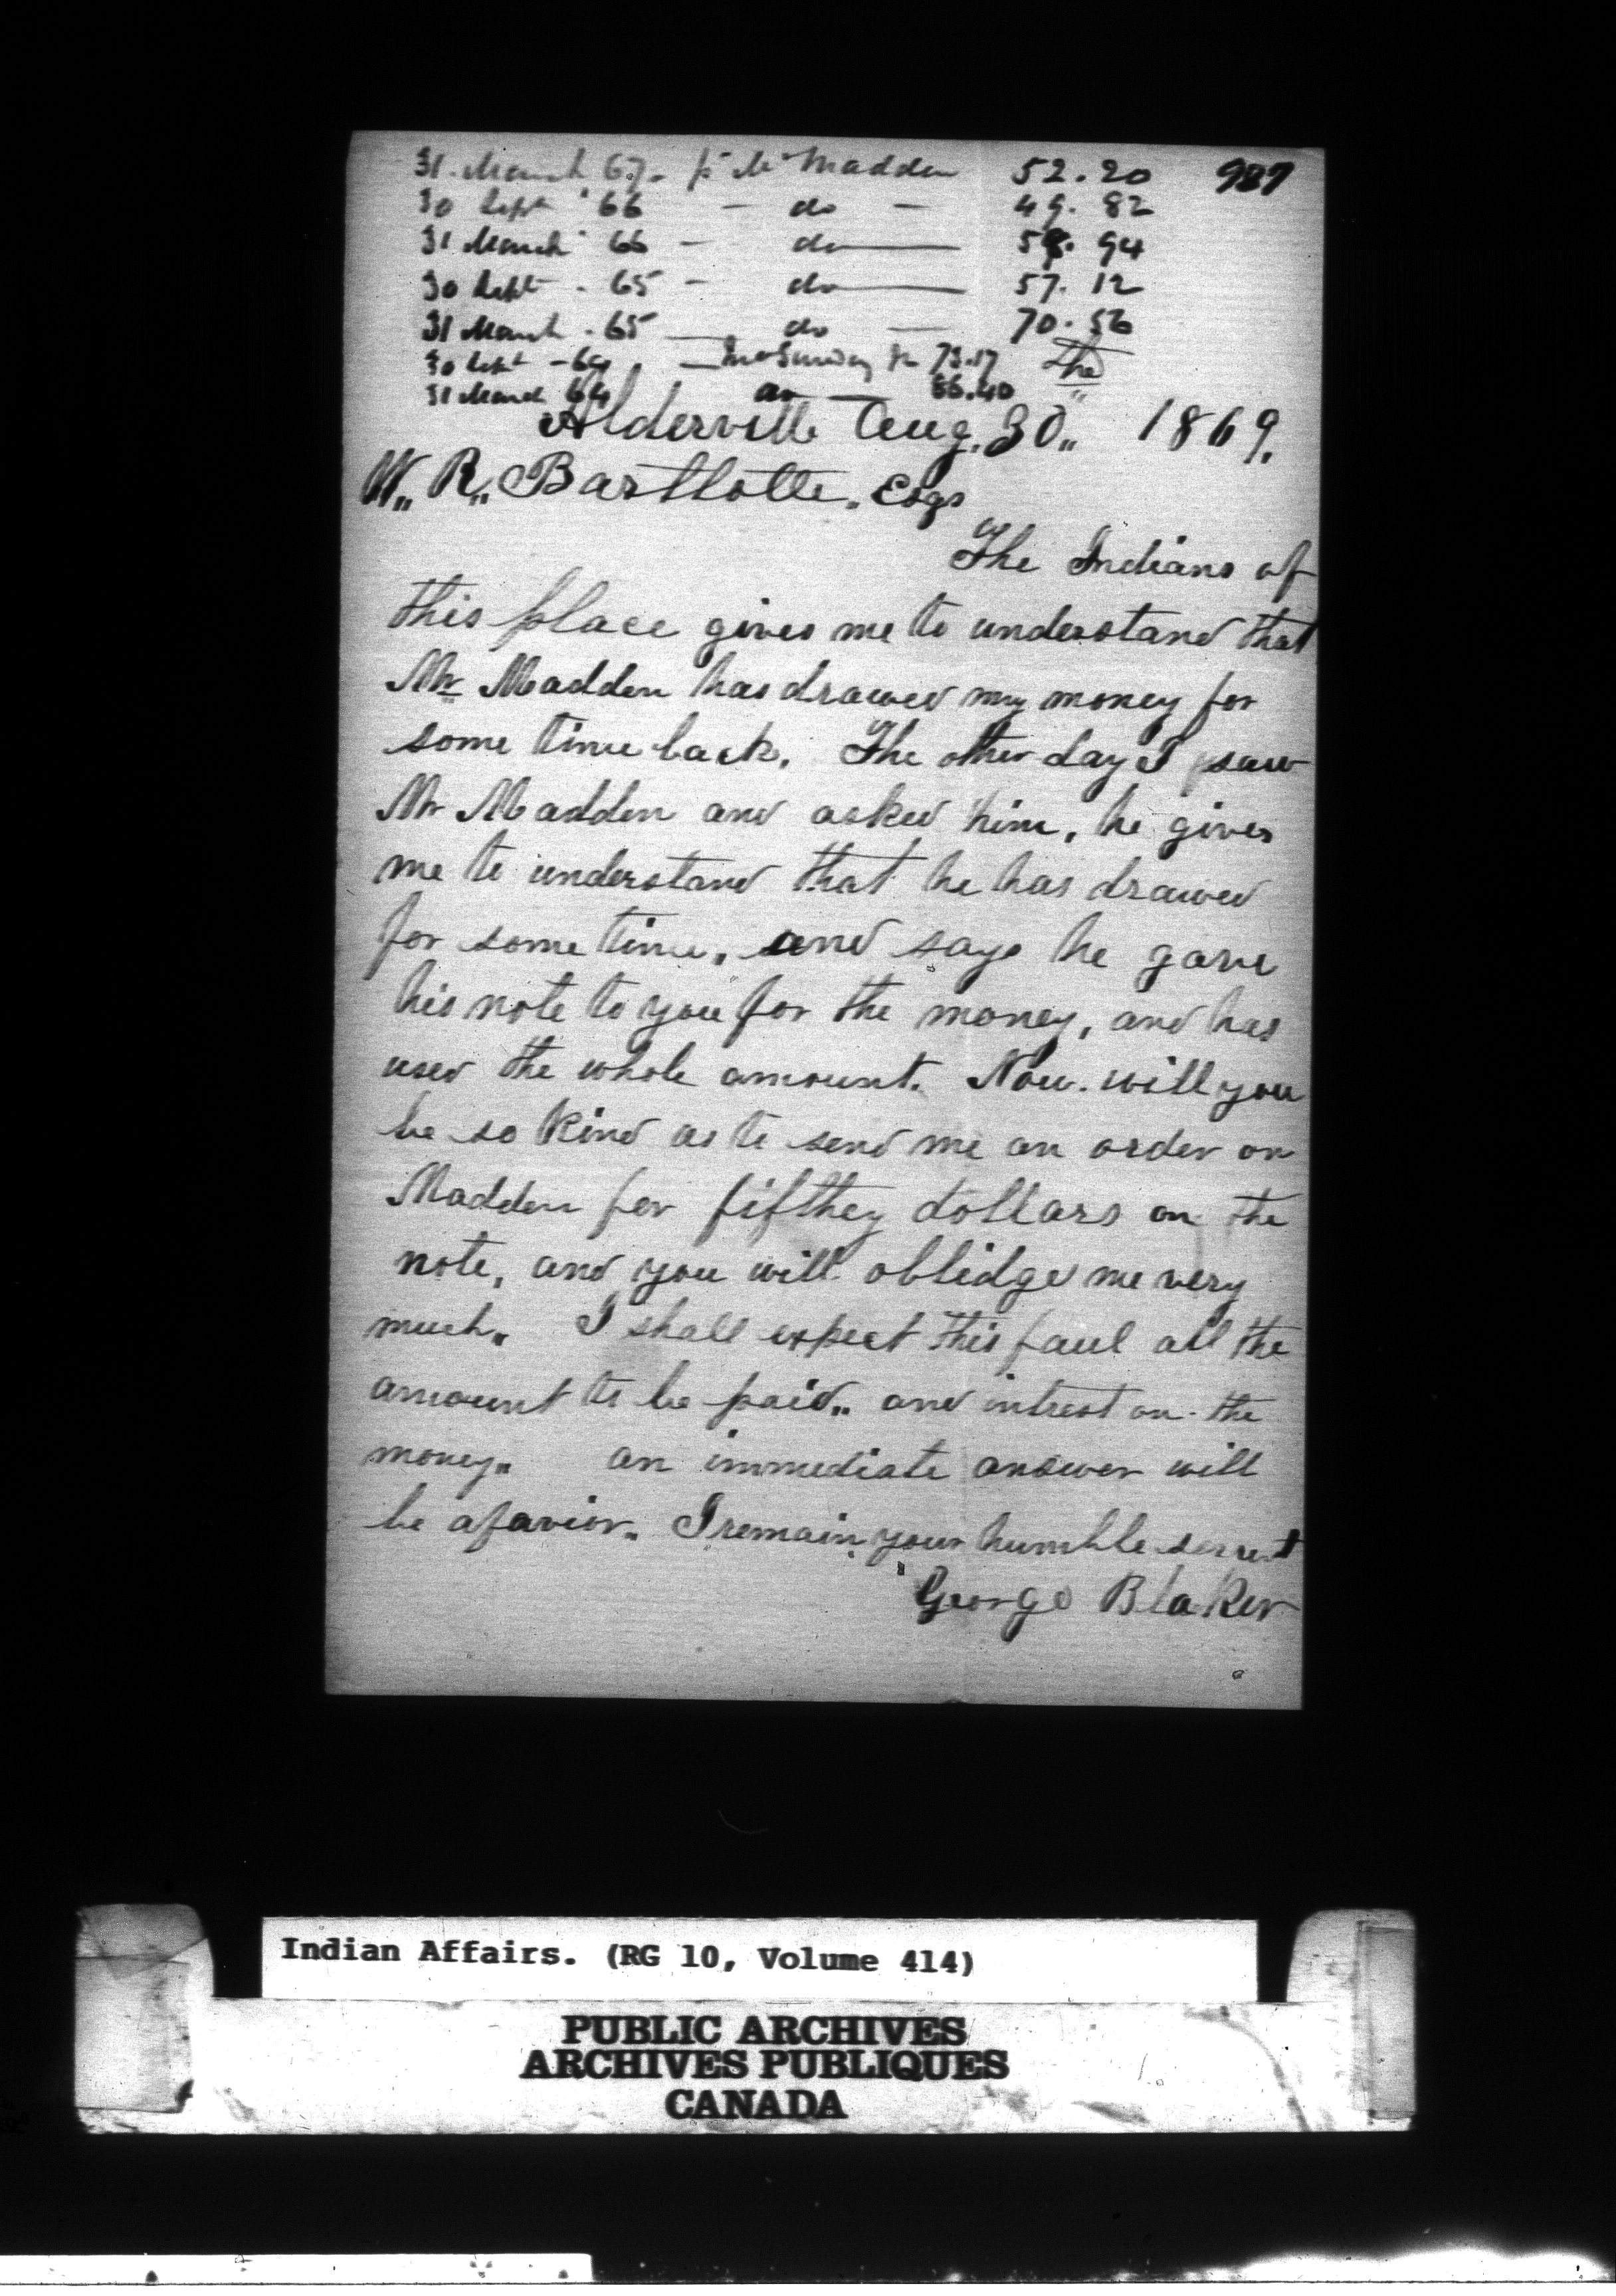 31. March 67. p Mr Madden 52.20 987
30 Sept 66 - do - 49.82
31 March 66 - do 58.94
30 Sept - 65 - do 57.12
31 March - 65 do 70.56
30 Sept - 64 73.17
31 March 64 do 66.40
Alderville Aug. 30,, 1869.
W,, R,, Bartlotte,, Esqs
The Indians of
this place gives me to understand that
Mr Madden has drawed my money for
some time back. The other day I saw
Mr Madden and asked him, he gives
me to understand that he has drawed
for some time, and says he gave
his note to you for the money, and has
used the whole amount. Now. will you
be so kind as to send me an order on
Madden for fifthey dollars on the
note, and you will oblidge me very
much,, I shall expect this faul all the
amount to be paid,, and intrest on the
money,, an immediate answer will
be a favior,, I remain your humble servent
George Blaker
Indian Affairs. (RG 10, Volume 414)
PUBLIC ARCHIVES
ARCHIVES PUBLIQUES
CANADA